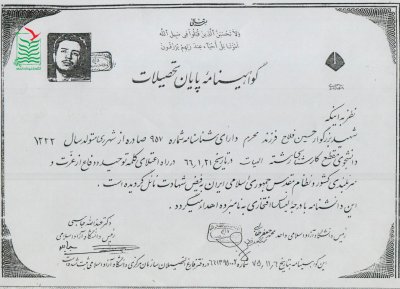 بسمه تعالی
ولا تحسبن الذین قتلوا فی سبیل الله
امواتا بل احیاء عند ربهم یرزقون
گواهینامه پایان تحصیلات
نظر به اینکه
شهید بزرگوار حسین فلاح فرزند محرم دارای شناسنامه شماره ۹۵۷ صادره از شهرری متولد سال ۱۳۲۲
دانشجوی مقطع کارشناسی رشته الهیات در تاریخ ۶۶,۱,۲۱ در راه اعتلای کلمه توحید و دفاع از عزت و
سربلندی کشور و نظام مقدس جمهوری اسلامی ایران به فیض شهادت نائل گردیده است،
این دانشنامه با درجه لیسانس افتخاری به نامبرده اهداء میگردد.
دکتر عبدالله جاسبی
رئیس دانشگاه آزاد اسلامی
رئیس دانشگاه آزاد اسلامی واحد
این گواهینامه بتاریخ ۷۵,۱۱,۶ شماره در دفتر فارغ التحصیلان سازمان مرکزی دانشگاه آزاد اسلامی ثبت شده است